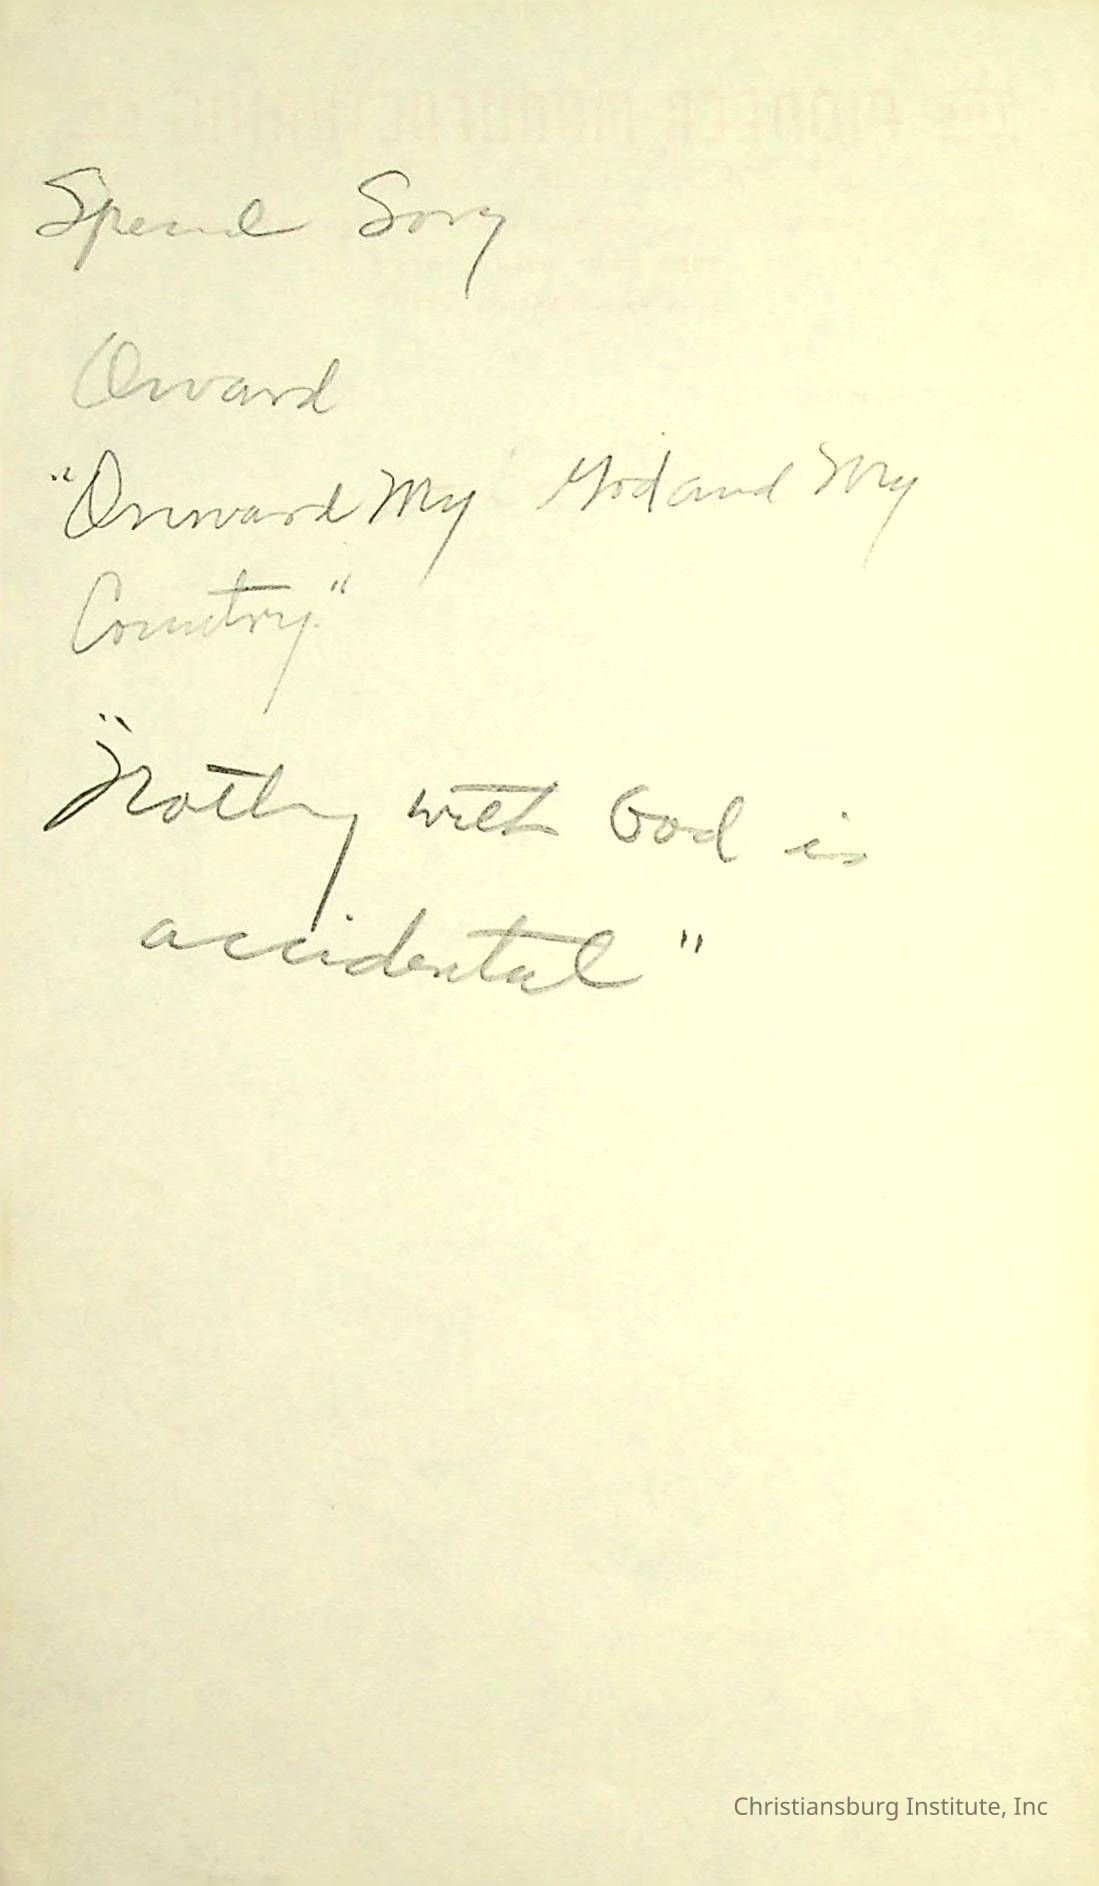 Special Song
Onward
"Onward My God and My
Country."
"Nothing with God is
accidental"
Christiansburg Institute, Inc